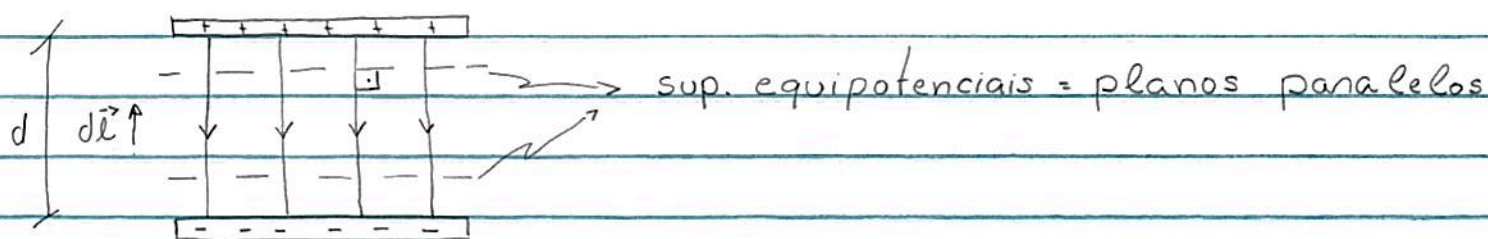 + + + + + +
sup. equipotenciais = planos paralelos
d dl⃗ ↑
- - - - - -